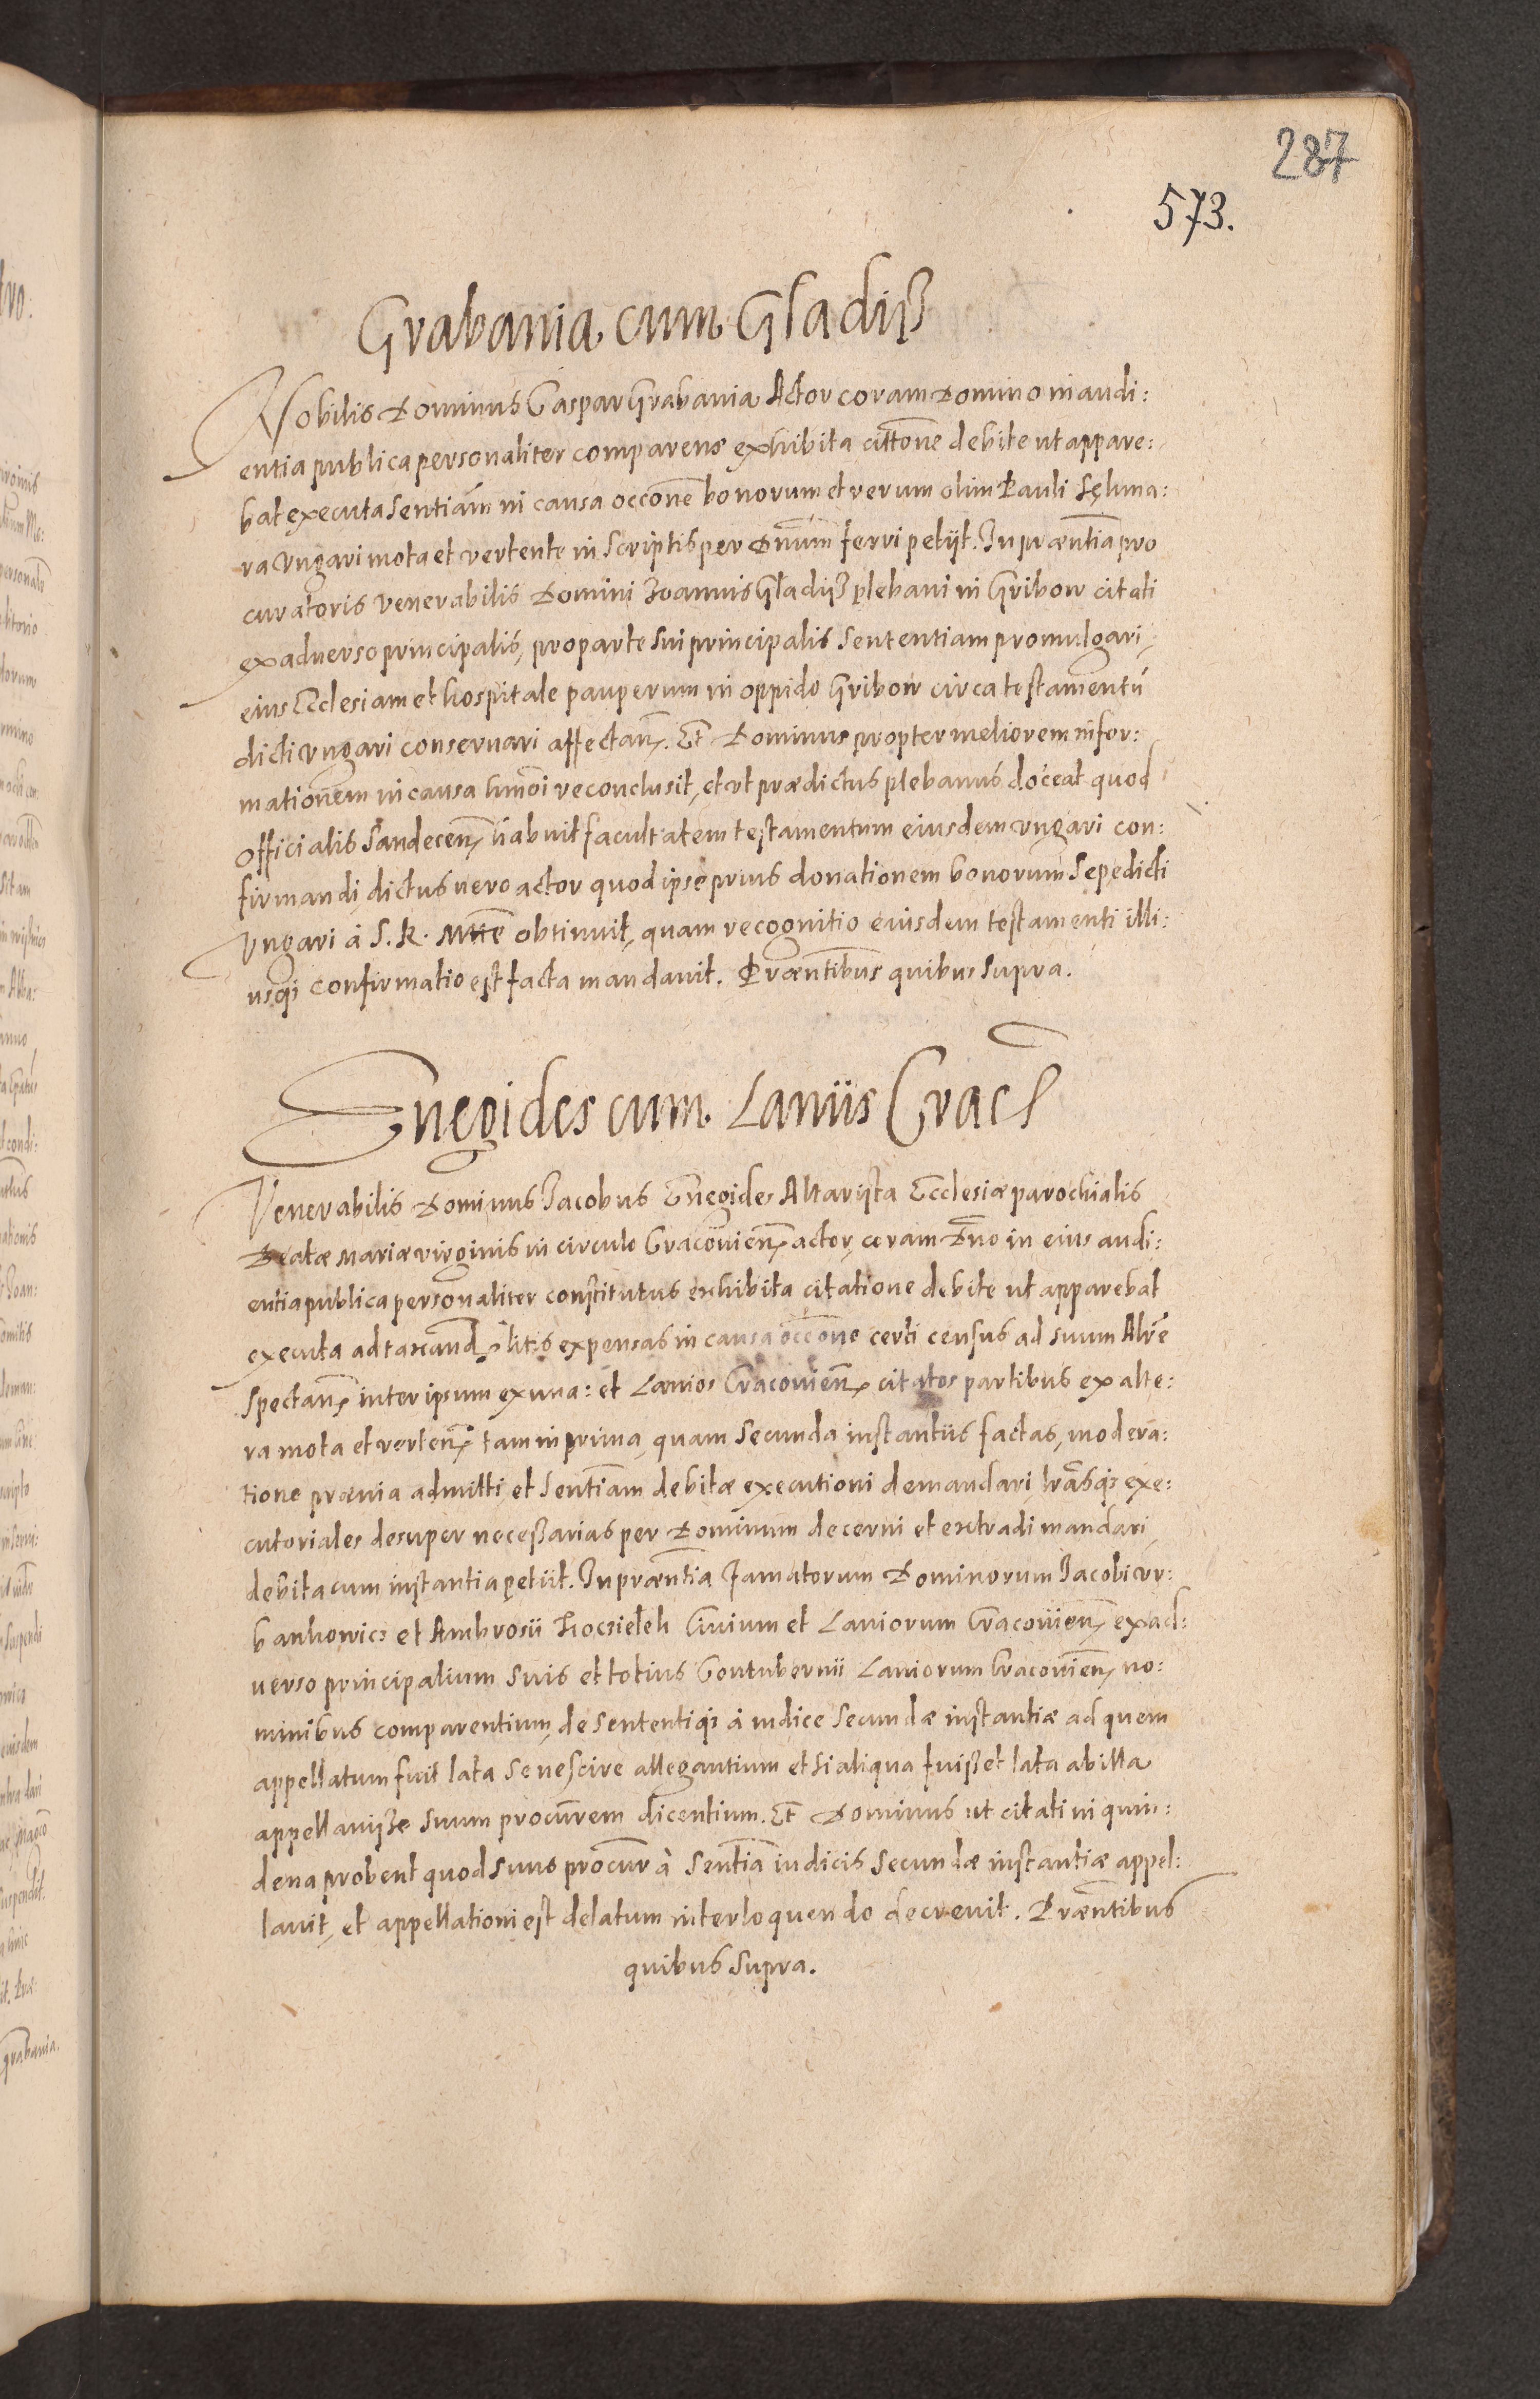 287
573.
Grabania cum Gladiß
Nobilis Dominus Gaspar Grabania Actor coram Domino in audi:
entia publica personaliter comparens exhibita cittone debite ut appare:
bat executa sentiam in causa occone bonorum et rerum olim Pauli
ra Ungari mota et vertente in scriptis per Dnum ferri petijt. In præntia pro
curatoris venerabilis Domini Joannis Gladiß plebani in Gribow citati
ex adverso principalis, pro parte sui principalis sententiam promulgari,
eius Ecclesiam et hospitale pauperum in oppido Gribow circa testamentū
dicti Ungari conservari affectan. Et Dominus propter meliorem infor:
mationem in causa hmoi reconclusit, et ut prædictus plebanus doceat quod
officialis Sandecen habuit facultatem testamentum eiusdem Ungari con:
firmandi, dictus vero actor quod ipse prius donationem bonorum sepedicti
Ungari à S. R. Mtte obtinuit, quam recognitio eiusdem testamenti illi:
usqȝ confirmatio est facta mandavit. Præntibus quibus supra.
Enegides cum Laniis Crac
Venerabilis Dominus Jacobus Enegides Altarista Ecclesiæ parochialis
Beatæ Mariæ virginis in circulo Cracovien actor, coram Dno in eius audi:
entia publica personaliter constitutus exhibita citatione debite ut apparebat
executa ad taxand litis expensas in causa occone certi census ad suum Alre
spectan inter ipsum ex una: et Lanios Cracovien citatos partibus ex alte:
ra mota et verten tam in prima, quam secunda instantiis factas, modera:
tione prævia admitti, et sentiam debitæ executioni demandari, lrasqȝ exe:
cutoriales desuper necessarias per Dominum decerni et extradi mandari
debita cum instantia petiit. In præntia famatorum Dominorum Jacobi Ur:
bankowicz et Ambrosii Civium et Laniorum Cracovien ex ad:
verso principalium suis et totius Contubernii Laniorum Cracovien no:
minibus comparentium, de sententiqȝ à iudice secundæ instantiæ ad quem
appellatum fuit lata se nescire allegantium et si aliqua fuisset lata ab illa
appellavisse suum procurem dicentium. Et Dominus ut citati in quin:
dena probent quod suus procur à sentia iudicis secundæ instantiæ appel:
lavit, et appellationi est delatum interloquendo decrevit. Præntibus
quibus supra.